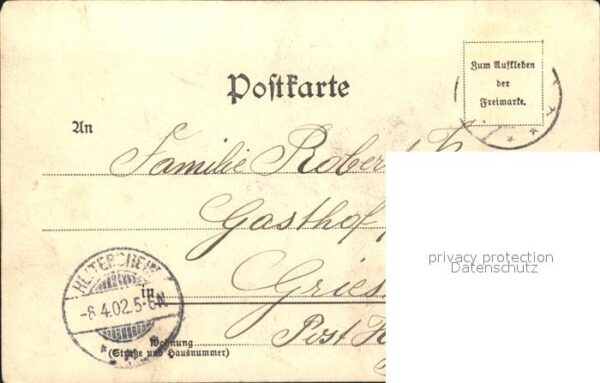 Postkarte
Zum Aufkleben
der
Freimarke.
An
Familie Rober
Gasthof
privacy protection
Datenschutz
HEITERSHEIM
-8.4.02.5-6N
in
Gries
Post
Wohnung
(Straße und Hausnummer)